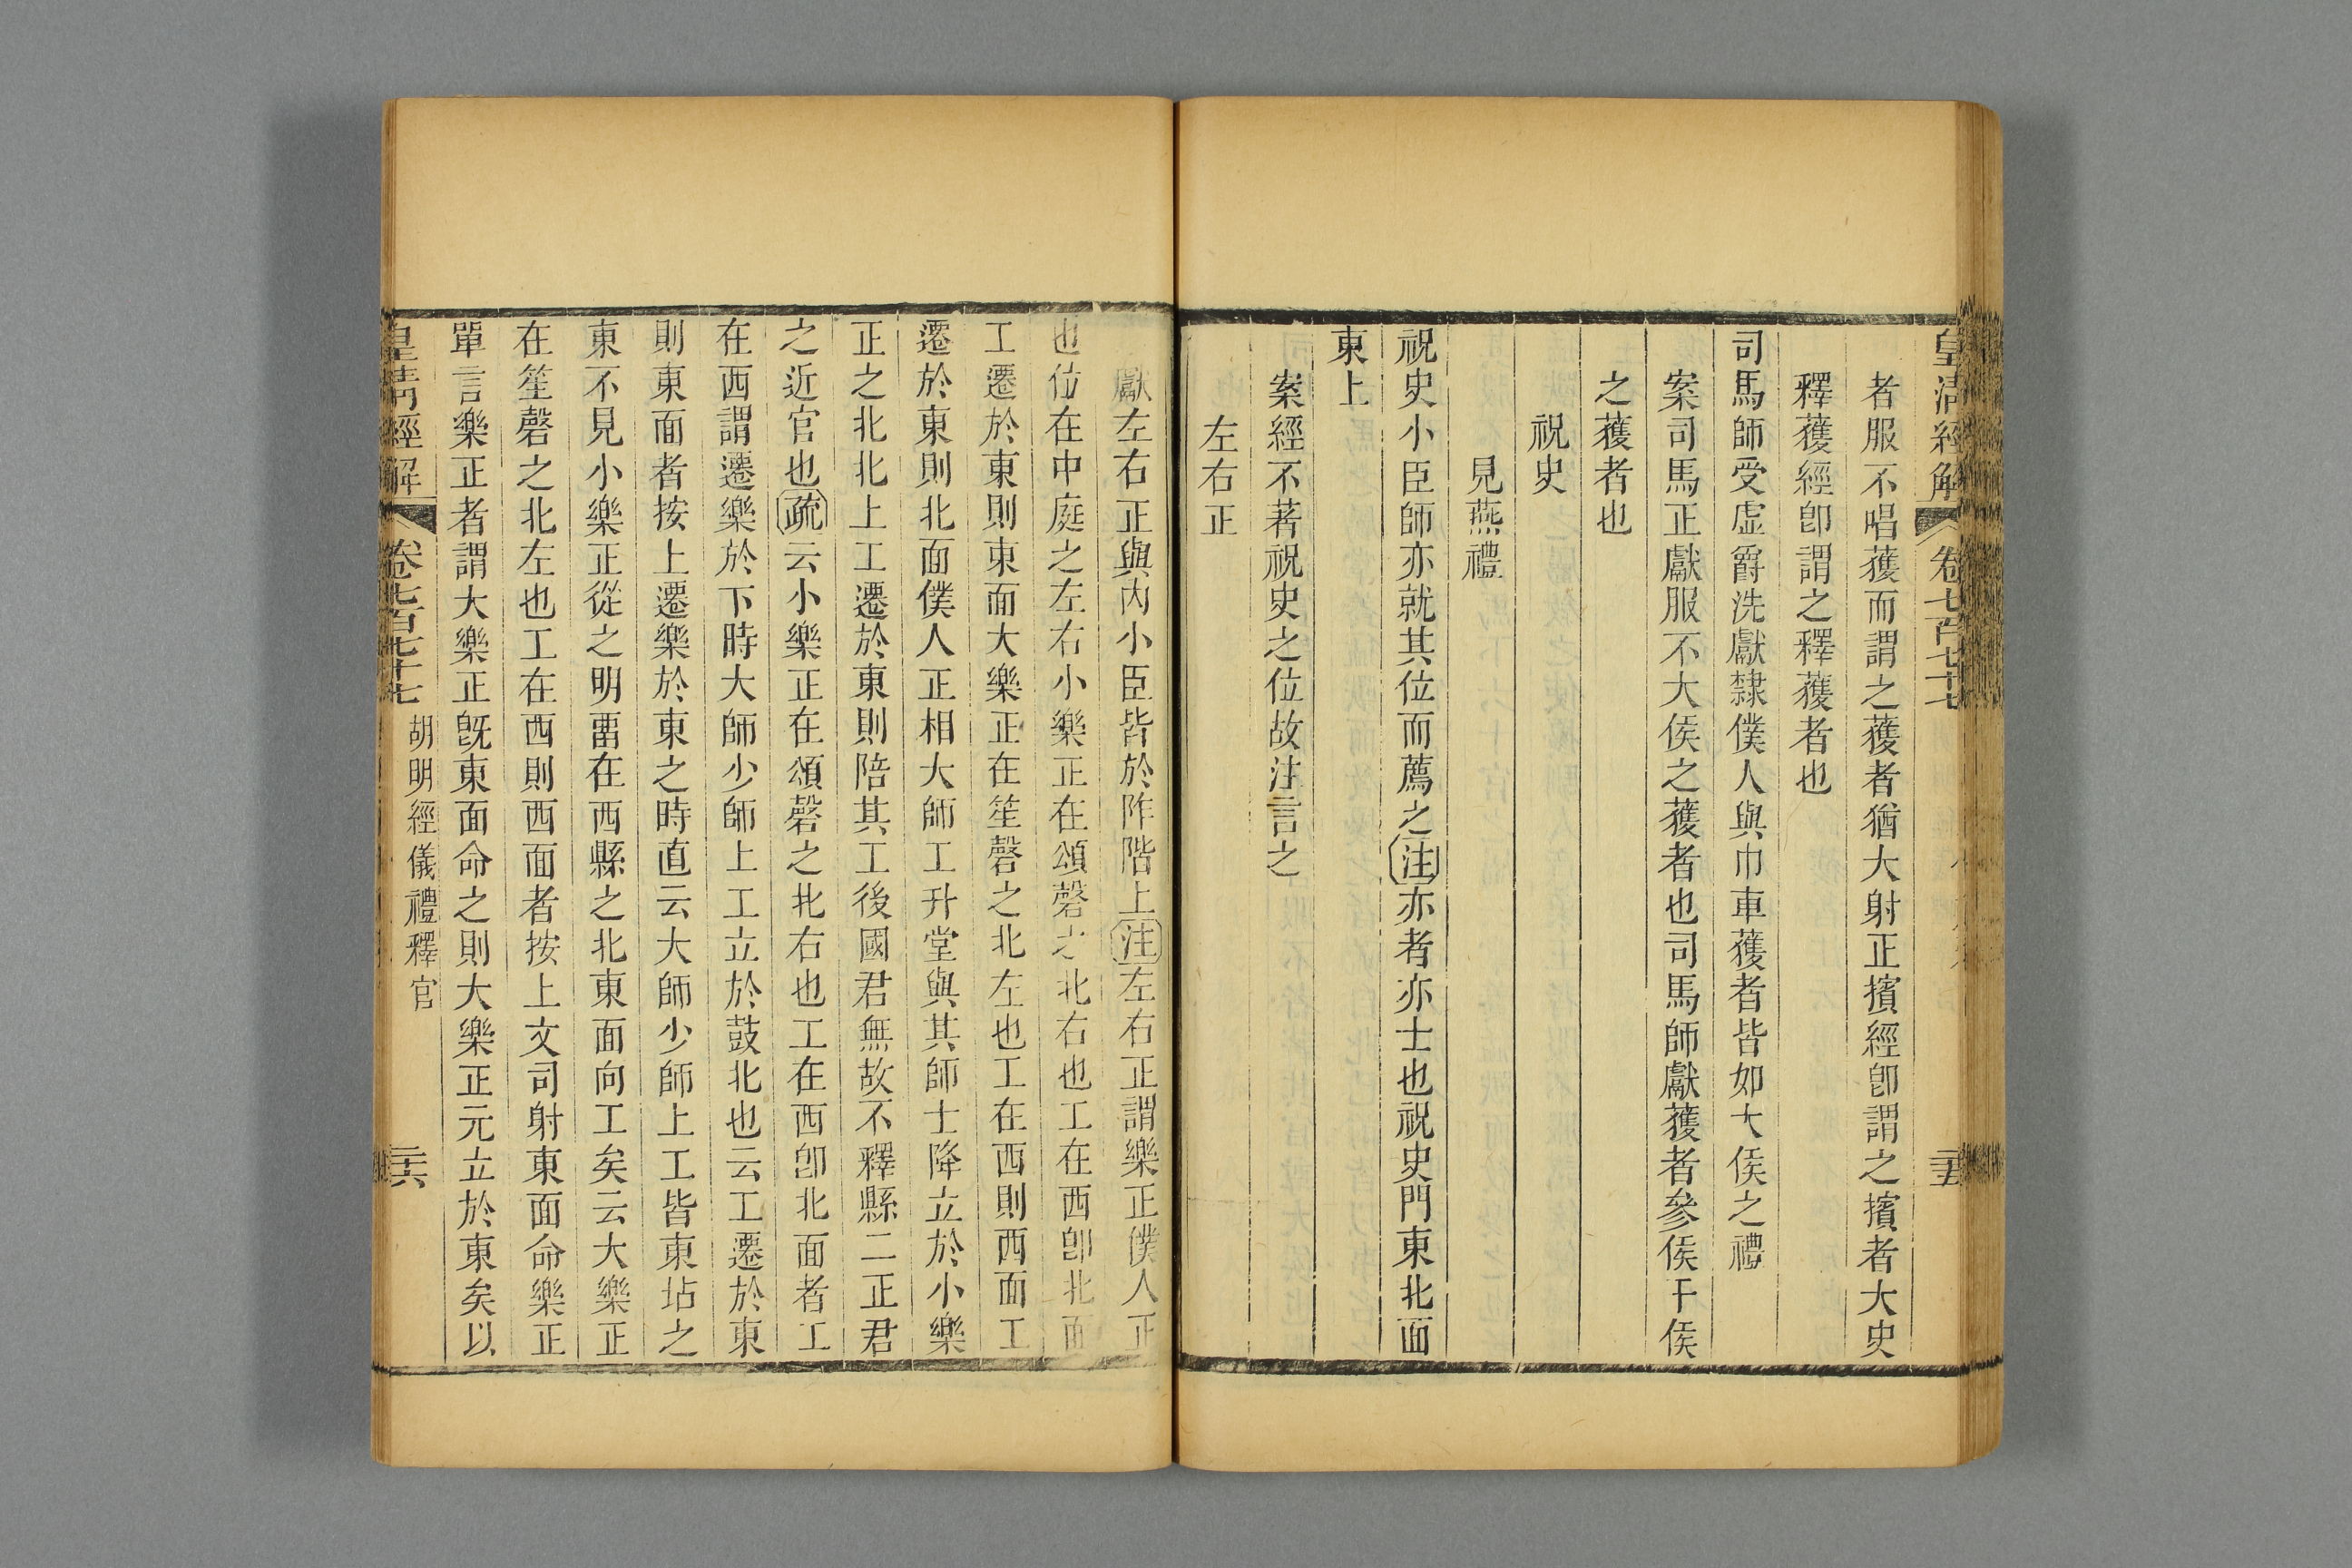 皇清經解 卷七百七十七 二十五
者服不唱獲而謂之獲者猶大射正擯經卽謂之擯者大史
釋獲經卽謂之釋獲者也
司馬師受虛爵洗獻隸僕人與巾車獲者皆如大侯之禮
案司馬正獻服不大侯之獲者也司馬師獻獲者參侯干侯
之獲者也
祝史
見燕禮
祝史小臣師亦就其位而薦之注亦者亦士也祝史門東北面
東上
案經不著祝史之位故注言之
左右正
獻左右正與內小臣皆於阼階上注左右正謂樂正僕人正
也位在中庭之左右小樂正在頌磬之北右也工在西卽北面
工遷於東則東面大樂正在笙磬之北左也工在西則西面工
遷於東則北面僕人正相大師工升堂與其師士降立於小樂
正之北北上工遷於東則陪其工後國君無故不釋縣二正君
之近官也疏云小樂正在頌磬之北右也工在西卽北面者工
在西謂遷樂於下時大師少師上工立於鼓北也云工遷於東
則東面者按上遷樂於東之時直云大師少師上工皆東坫之
東不見小樂正從之明畱在西縣之北東面向工矣云大樂正
在笙磬之北左也工在西則西面者按上文司射東面命樂正
單言樂正者謂大樂正旣東面命之則大樂正元立於東矣以
皇清經解 卷七百七十七 胡明經儀禮釋官 二十六